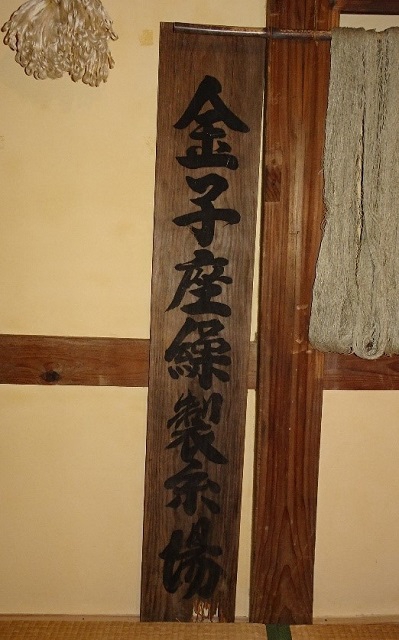 金子座繰製糸場